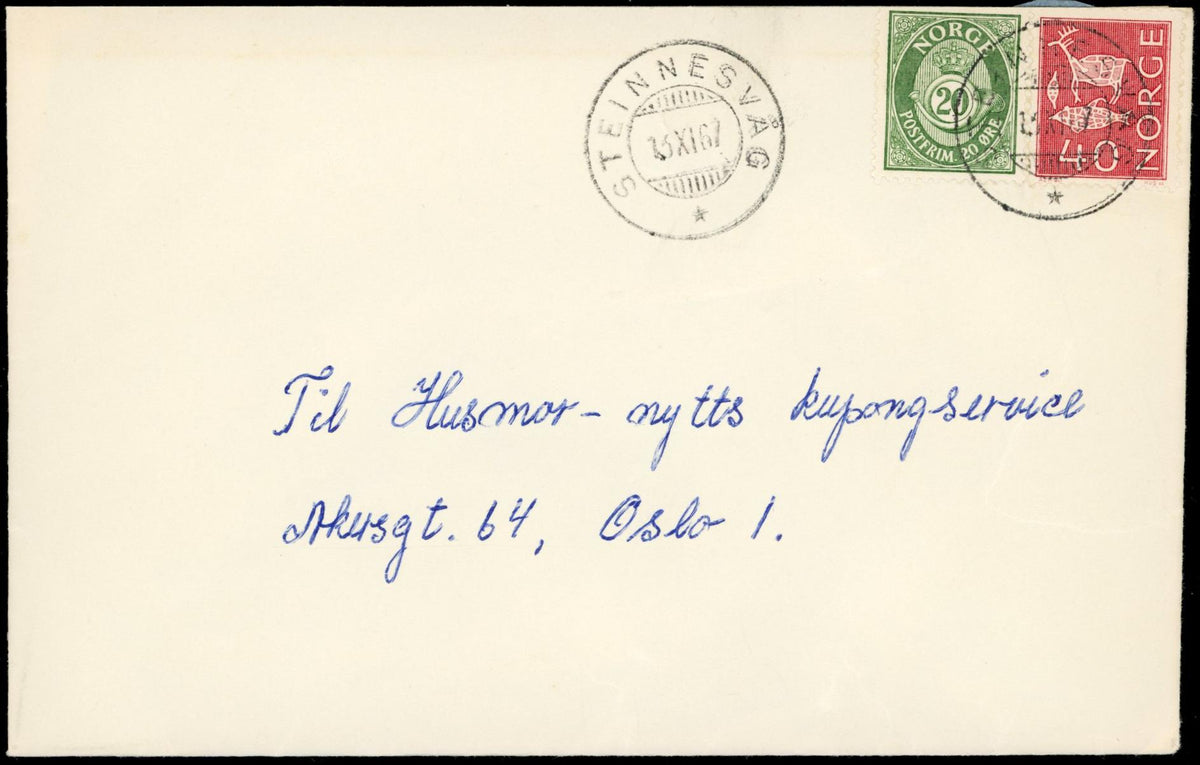 STEINNESVÅG
XI 67
NORGE
20
POSTFRIM. 20 ØRE
NORGE
40
Til Husmor-nytts kupongservice
Akersgt. 64, Oslo 1.